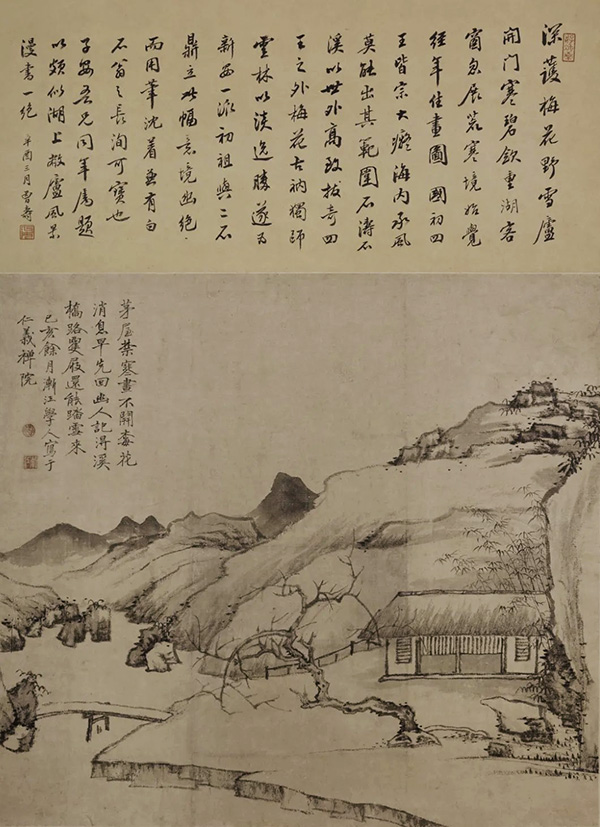 深護梅花野雪廬
開門寒碧飲重湖客
窗忽展荒寒境始覺
經年佳畫圖 國初四
王皆宗大癡海內承風
莫能出其範圍石濤石
溪以世外高致拔奇四
王之外梅花古衲獨師
雲林以淡逸勝遂為
新安一派初祖與二石
鼎立此幅意境幽絕
而用筆沈着兼有白
石翁之長洵可寶也
子安吾兄同年屬題
以頗似湖上敝廬風景
漫書一絕 辛酉三月曾壽
茅屋禁寒晝不開花
消息早先回幽人記得溪
橋路屐還能踏雪來
己亥餘月漸江學人寫于
仁義禪院